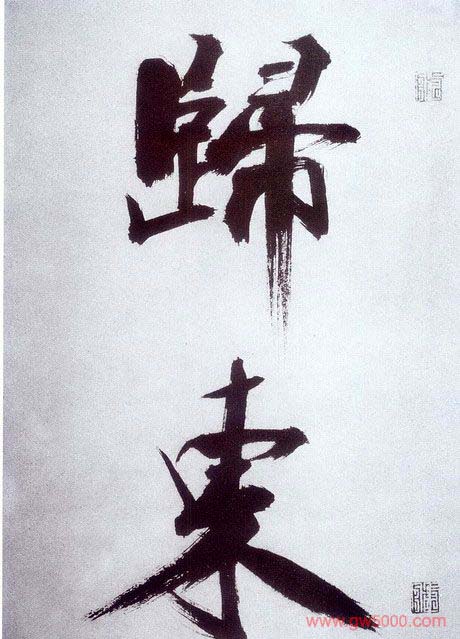 歸
東
www.gw5000.com